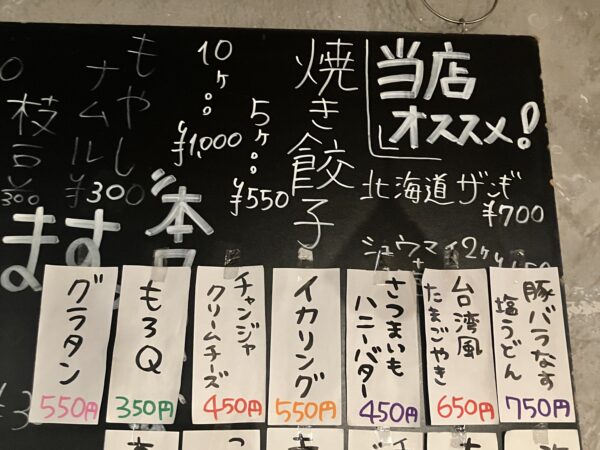 当店
オススメ!
北海道ザンギ
¥700
シュウマイ2ヶ
焼き餃子
5ヶ
¥550
10ヶ
¥1,000
もやし
ナムル
¥300
枝豆
¥300
本日
ます
豚バラなす
塩うどん
750円
台湾風
たまごやき
650円
さつまいも
ハニーバター
450円
イカリング
550円
チャンジャ
クリームチーズ
450円
もろQ
350円
グラタン
550円